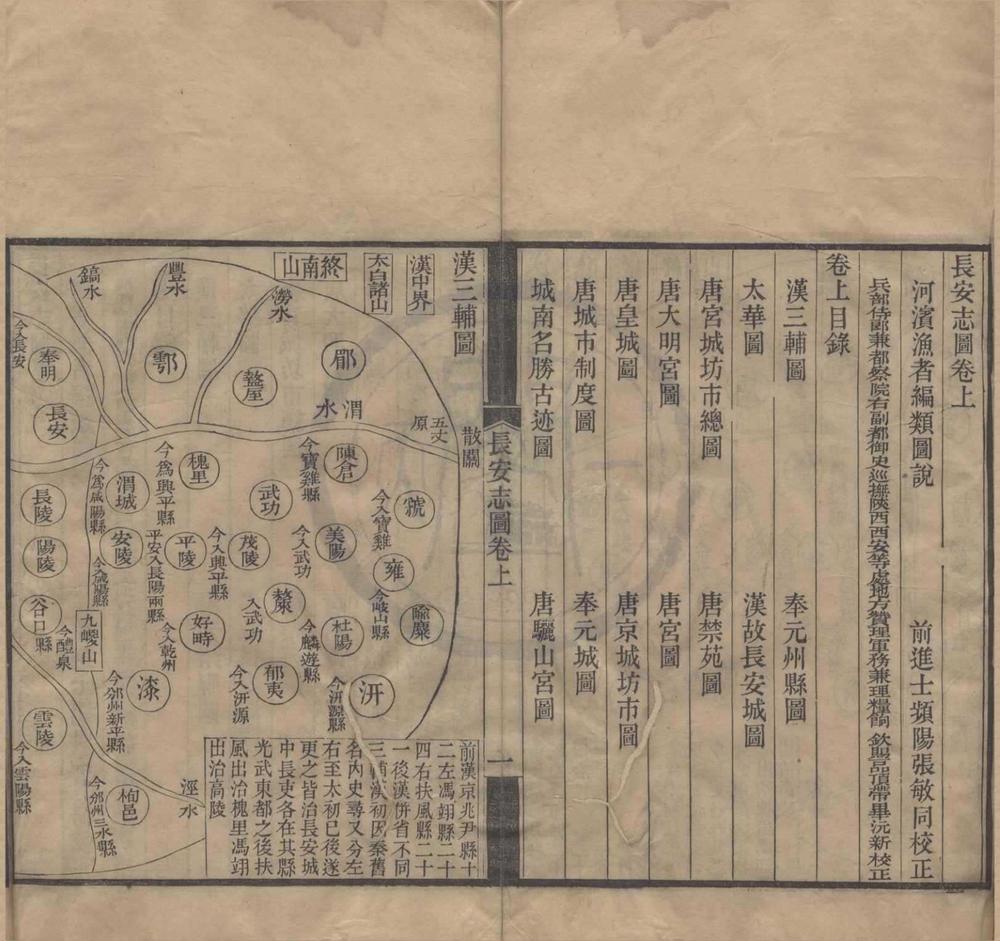 長安志圖卷上
河濱漁者編類圖說
前進士頻陽張敏同校正
兵部侍郎兼都察院右副都御史巡撫陝西西安等處地方贊理軍務兼理糧餉 欽賜品頂帶畢沅新校正
卷上目錄
漢三輔圖
奉元州縣圖
太華圖
漢故長安城圖
唐宮城坊市總圖
唐禁苑圖
唐大明宮圖
唐宮圖
唐皇城圖
唐京城坊市圖
唐城市制度圖
奉元城圖
城南名勝古迹圖
唐驪山宮圖
長安志圖卷上
一
漢三輔圖
漢中界
太白諸山
終南山
澇水
豐水
鎬水
散關
五丈原
渭水
郿
盩厔
鄠
奉明
今入長安
長安
陳倉
今寶雞縣
虢
今入寶雞
槐里
今爲興平縣
武功
渭城
今爲咸陽縣
長陵
雍
今岐山縣
美陽
今入武功
茂陵
今入興平縣
平陵
平安入長陽兩縣
安陵
今咸陽縣
陽陵
隃麋
杜陽
今麟遊縣
斄
入武功
好畤
今入乾州
九嵕山
谷口縣
今醴泉
汧
今汧源縣
郁夷
今入汧源
漆
今邠州新平縣
雲陵
今入雲陽縣
栒邑
今邠州三水縣
涇水
前漢京兆尹縣十
二左馮翊縣二十
四右扶風縣二十
一後漢併省不同
三輔漢初因秦舊
名內史尋又分左
右至太初已後遂
更之皆治長安城
中長吏各在其縣
光武東都之後扶
風出治槐里馮翊
出治高陵